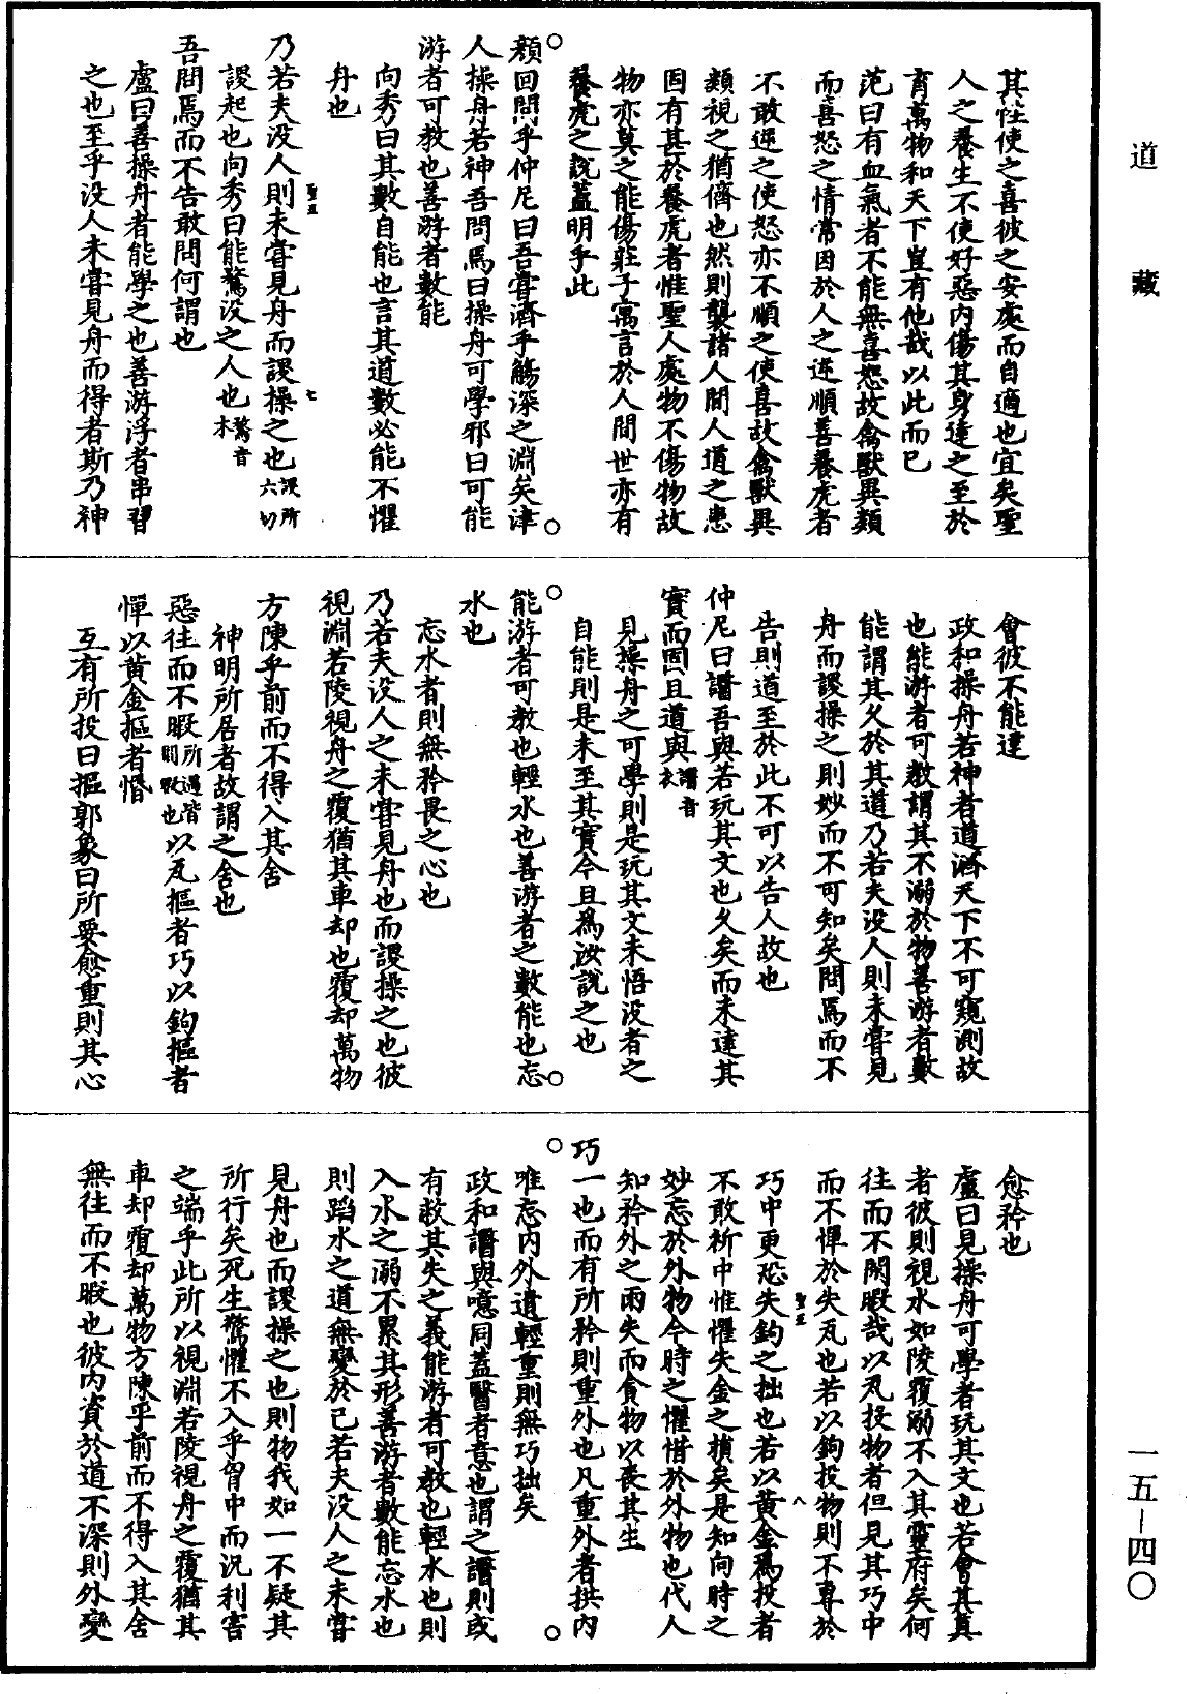 道藏
其性使之喜彼之安處而自適也宜矣聖
人之養生不使好惡內傷其身達之至於
育萬物和天下豈有他哉以此而已
范曰有血氣者不能無喜怒故禽獸異類
而喜怒之情常因於人之逆順善養虎者
不敢逆之使怒亦不順之使喜故禽獸異
類視之猶儕也然則襲諸人間人道之患
固有甚於養虎者惟聖人處物不傷物故
物亦莫之能傷莊子寓言於人間世亦有
養虎之說蓋明乎此
顏回問乎仲尼曰吾嘗濟乎觴深之淵矣津
人操舟若神吾問焉曰操舟可學邪曰可能
游者可教也善游者數能
向秀曰其數自能也言其道數必能不懼
舟也
乃若夫没人則未嘗見舟而謖操之也謖所六切
聖五
七
謖起也向秀曰能鶩没之人也鶩音木
吾問焉而不告敢問何謂也
盧曰善操舟者能學之也善游浮者串習
之也至乎没人未嘗見舟而得者斯乃神
會彼不能達
政和操舟若神者道涵天下不可窺測故
也能游者可教謂其不溺於物善游者數
能謂其久於其道乃若夫没人則未嘗見
舟而謖操之則妙而不可知矣問焉而不
告則道至於此不可以告人故也
仲尼曰譆吾與若玩其文也久矣而未達其
實而固且道與譆音衣
見操舟之可學則是玩其文未悟没者之
自能則是未至其實今且爲汝說之也
能游者可教也輕水也善游者之數能也忘
水也
忘水者則無矜畏之心也
乃若夫没人之未嘗見舟也而謖操之也彼
視淵若陵視舟之覆猶其車却也覆却萬物
方陳乎前而不得入其舍
神明所居者故謂之舍也
惡往而不暇所遇皆閑暇也以瓦摳者巧以鉤摳者
憚以黄金摳者惛
互有所投曰摳郭象曰所要愈重則其心
愈矜也
盧曰見操舟可學者玩其文也若會其真
者彼則視水如陵覆溺不入其靈府矣何
往而不閑暇哉以瓦投物者但見其巧中
而不憚於失瓦也若以鉤投物則不專於
巧中更恐失鉤之拙也若以黄金爲投者
聖五
八
不敢祈中惟懼失金之損矣是知向時之
妙忘於外物今時之懼惜於外物也代人
知矜外之兩失而貪物以喪其生
巧一也而有所矜則重外也凡重外者拱内
唯忘内外遺輕重則無巧拙矣
政和譆與噫同蓋醫者意也謂之譆則或
有救其失之義能游者可教也輕水也則
入水之溺不累其形善游者數能忘水也
則蹈水之道無變於已若夫没人之未嘗
見舟也而謖操之也則物我如一不疑其
所行矣死生驚懼不入乎胷中而況利害
之端乎此所以視淵若陵視舟之覆猶其
車却覆却萬物方陳乎前而不得入其舍
無往而不暇也彼内資於道不深則外變
一五—四〇